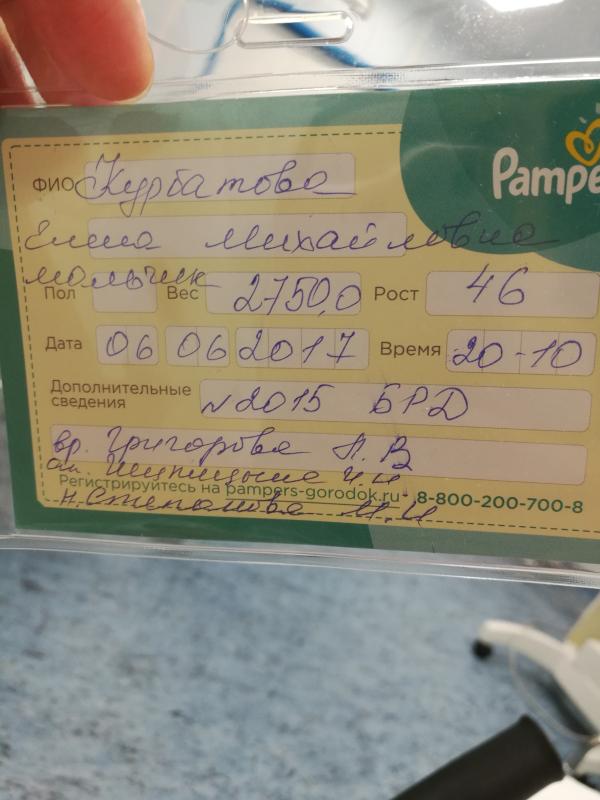 Pampe
ФИО Курбатова
Елена Михайловна
мальчик
Пол Вес 2750,0 Рост 46
Дата 06 06 2017 Время 20-10
Дополнительные сведения N2015 БРД
вр. Григорова Л. В
ан.
Регистрируйтесь на pampers-gorodok.ru 8-800-200-700-8
н. Степанова М.И